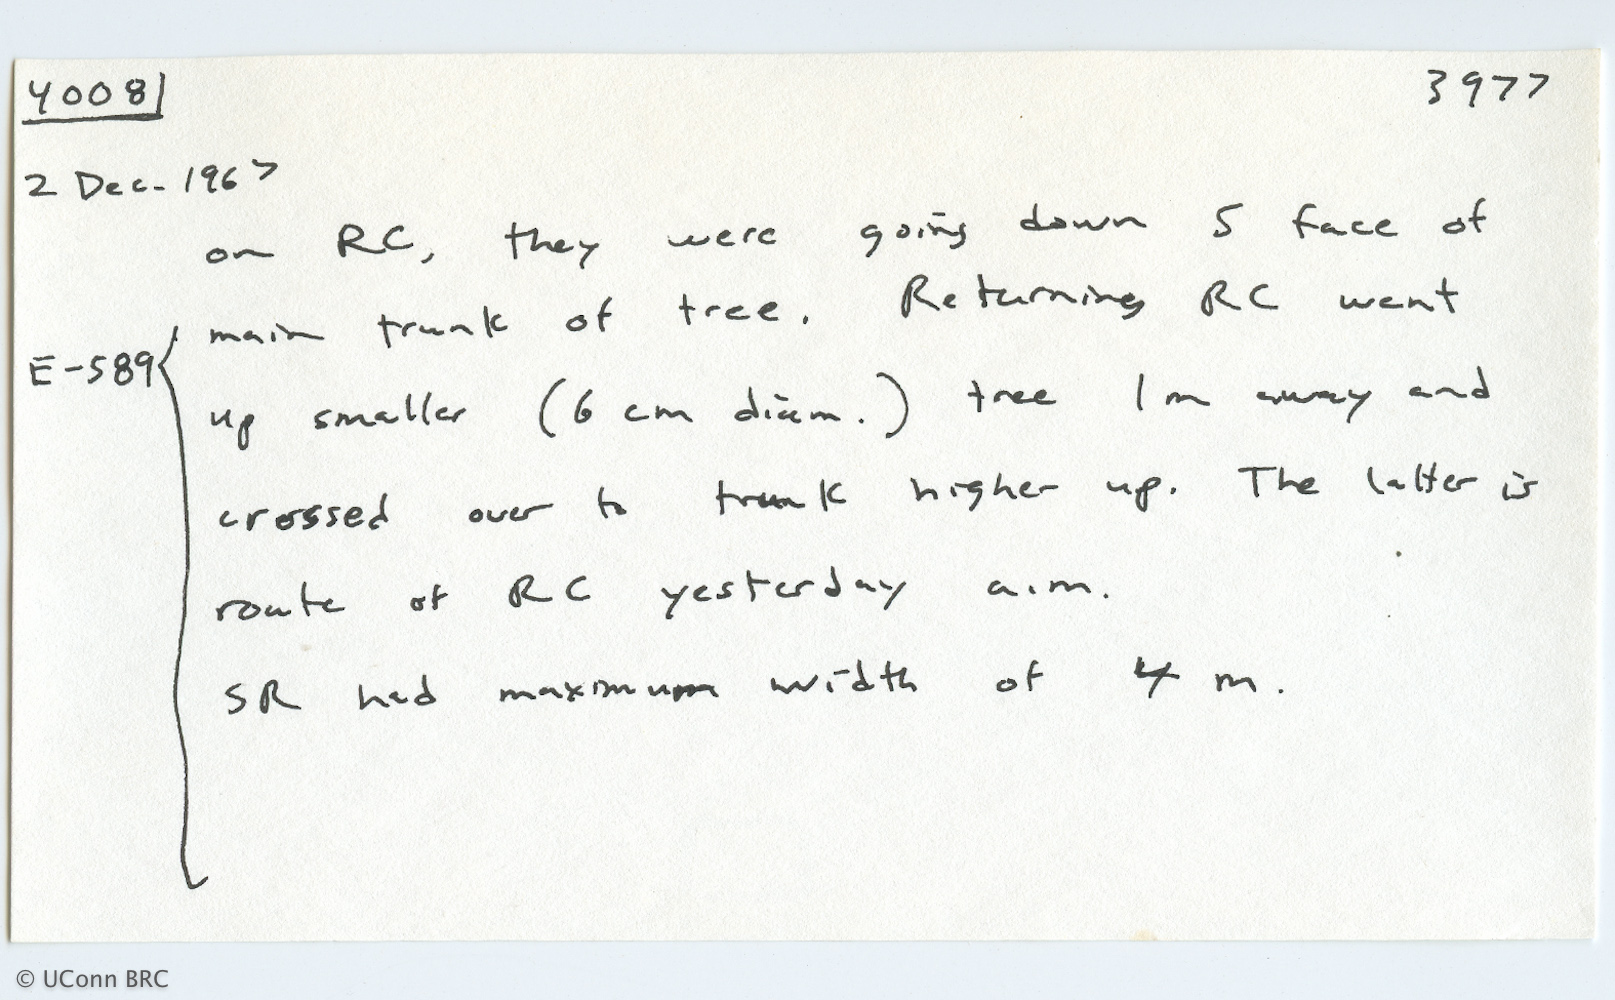 4008
3977
2 Dec. 1967
on RC, they were going down S face of
main trunk of tree. Returning RC went
E-589
up smaller (6 cm diam.) tree 1 m away and
crossed over to trunk higher up. The latter is
route of RC yesterday a.m.
SR had maximum width of 4 m.
© UConn BRC